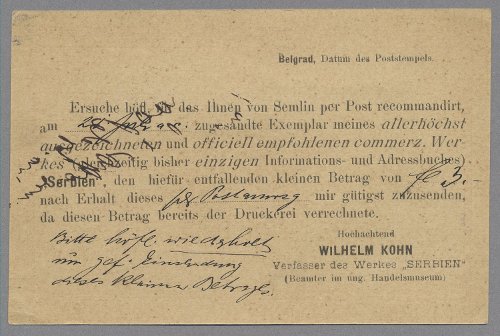 Belgrad, Datum des Poststempels.
Ersuche höfl. für das Ihnen von Semlin per Post recommandirt,
am zugesandte Exemplar meines allerhöchst
ausgezeichneten und officiell empfohlenen commerz. Wer-
kes (gleichzeitig bisher einzigen Informations- und Adressbuches)
„Serbien", den hiefür entfallenden kleinen Betrag von fl 3.-
nach Erhalt dieses per Postanwsg mir gütigst zuzusenden,
da diesen Betrag bereits der Druckerei verrechnete.
Hochachtend
WILHELM KOHN
Verfasser des Werkes „SERBIEN"
(Beamter im ung. Handelsmuseum)
Bitte höfl. wiederholt
um gef. Einsendung
dieses kleinen Betrags.